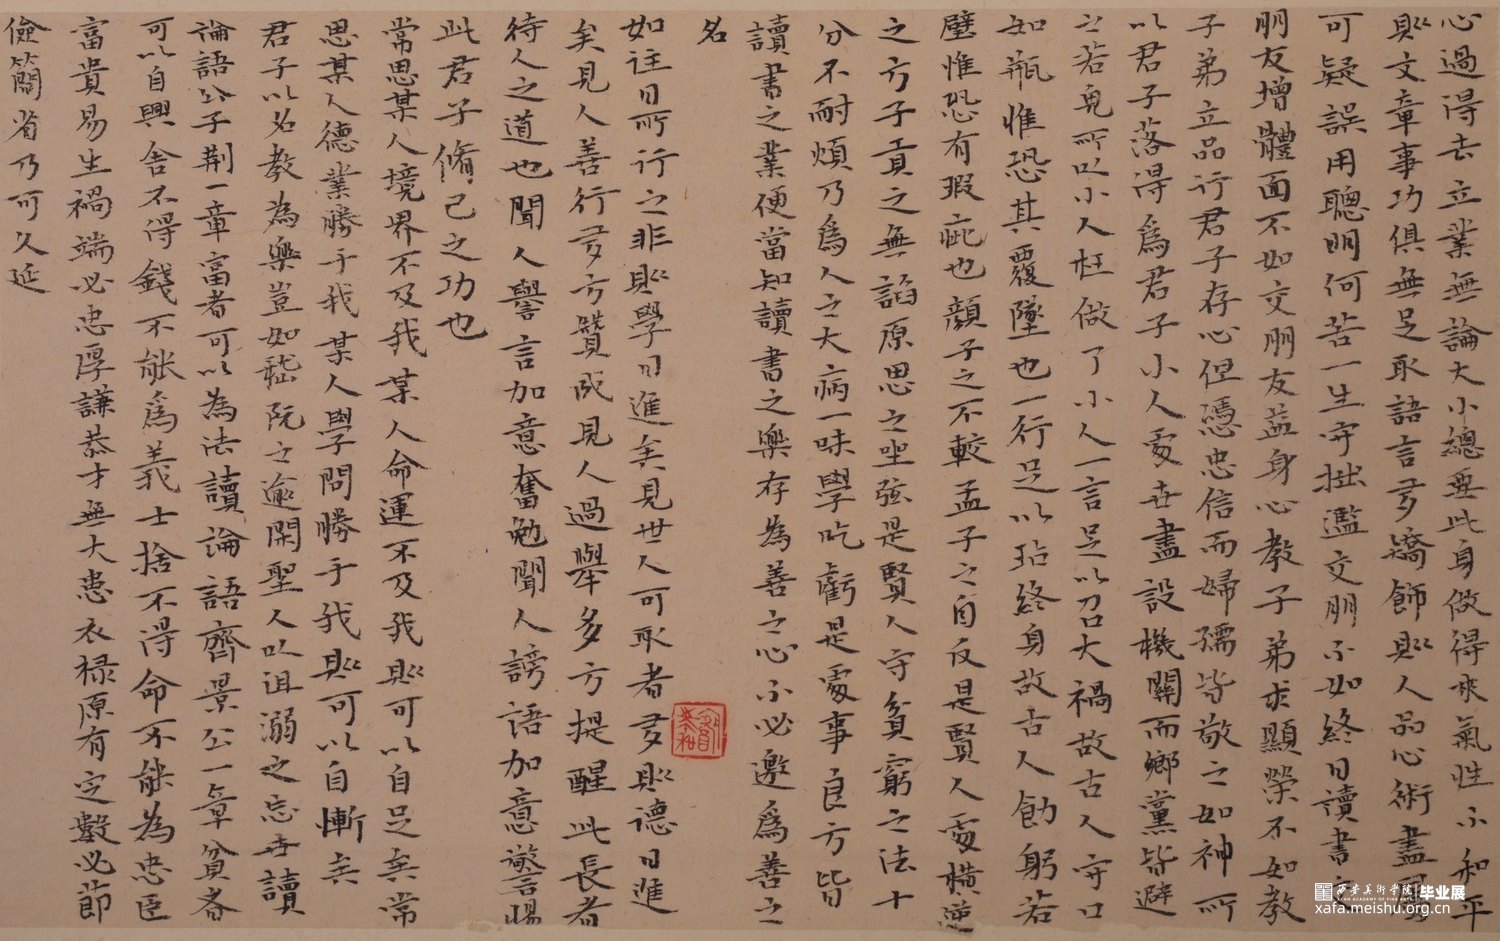 心過得去立業無論大小總要此身做得來氣性不和平
則文章事功俱無足取語言多矯飾則人品心術盡可
可疑誤用聰明何苦一生守拙濫交朋不如終日讀書交
朋友增體面不如交朋友益身心教子弟求顯榮不如教
子弟立品行君子存心但憑忠信而婦孺皆敬之如神所
以君子落得為君子小人處世盡設機關而鄉黨皆避
之若鬼所以小人枉做了小人一言足以召大禍故古人守口
如瓶惟恐其覆墜也一行足以玷終身故古人飭躬若
璧惟恐有瑕疵也顏子之不較孟子之自反是賢人處橫逆
之方子貢之無諂原思之坐弦是賢人守貧窮之法十
分不耐煩乃為人之大病一味學吃虧是處事良方皆
讀書之業便當知讀書之樂存為善之心不必邀為善之
名
如往日所行之非則學日進矣見世人可取者多則德日進
矣見人善行多方贊成見人過舉多方提醒此長者
待人之道也聞人譽言加意奮勉聞人謗語加意警惕
此君子脩己之功也
常思某人境界不及我某人命運不及我則可以自足矣常
思某人德業勝于我某人學問勝于我則可以自慚矣
君子以名教為樂豈如嵇阮之逾閑聖人以沮溺之忘世讀
論語公子荊一章富者可以為法讀論語齊景公一章貧者
可以自興舍不得錢不能為義士捨不得命不能為忠臣
富貴易生禍端必忠厚謙恭才無大患衣祿原有定數必節
儉簡省乃可久延
西安美術學院 毕业展
XI'AN ACADEMY OF FINE ARTS
xafa.meishu.org.cn